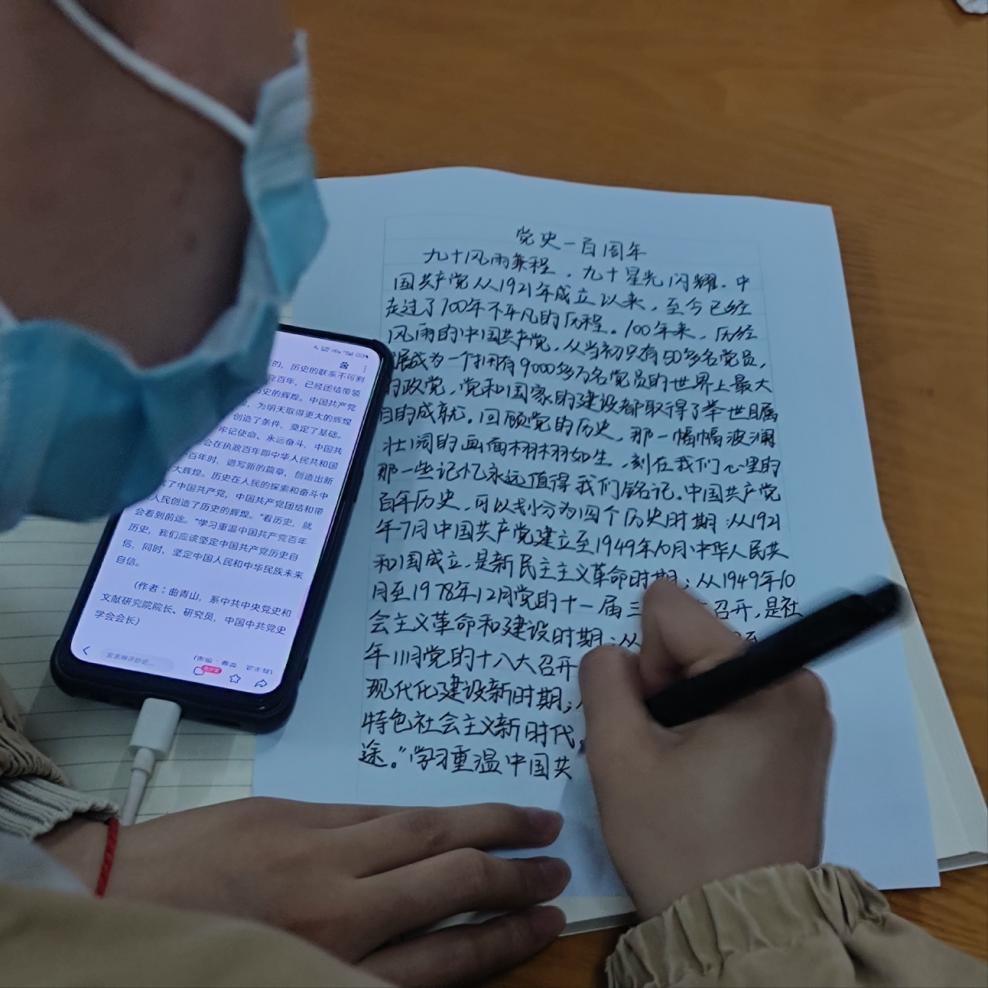 党史一百周年
九十风雨兼程,九十星光闪耀。中
国共产党从1921年成立以来,至今已经
走过了100年不平凡的历程。100年来,历经
风雨的中国共产党,从当初只有50多名党员,
发展成为一个拥有9000多万名党员的世界上最大
的政党,党和国家的建设都取得了举世瞩
目的成就。回顾党的历史,那一幅幅波澜
壮阔的画面栩栩如生,刻在我们心里的
那一些记忆永远值得我们铭记。中国共产党
百年历史,可以划分为四个历史时期:从1921
年7月中国共产党建立至1949年10月中华人民共
和国成立,是新民主主义革命时期;从1949年10
月至1978年12月党的十一届三 召开,是社
会主义革命和建设时期;从
年11月党的十八大召开
现代化建设新时期;
特色社会主义新时代,
途。"学习重温中国共
的,历史的联系不可割
百年,已经团结带领
史的辉煌。中国共产党
,为明天取得更大的辉煌
创造了条件,奠定了基础。
牢记使命、永远奋斗,中国共
会在执政百年即中华人民共和国
百年时,谱写新的篇章,创造出新
大辉煌。历史在人民的探索和奋斗中
了中国共产党,中国共产党团结和带
人民创造了历史的辉煌。"看历史,就
会看到前途。"学习重温中国共产党百年
历史,我们应该坚定中国共产党历史自
信,同时,坚定中国人民和中华民族未来
自信。
(作者:曲青山,系中共中央党史和
文献研究院院长、研究员,中国中共党史
学会会长)